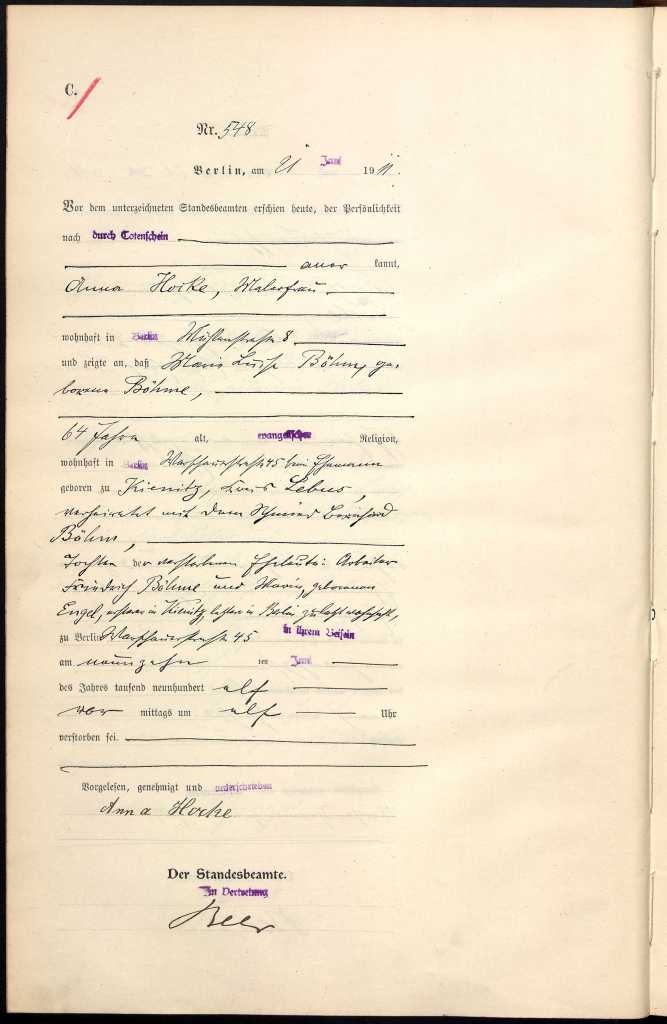 C.
Nr. 548
Berlin, am 21 Juni 1911.
Vor dem unterzeichneten Standesbeamten erschien heute, der Persönlichkeit
nach durch Totenschein
aner kannt,
Anna Hocke, Malerfrau
wohnhaft in Berlin Mühlenstraße 8
und zeigte an, daß Marie Luise Böhm, ge-
borene Böhme,
64 Jahre alt, evangelischer Religion,
wohnhaft in Berlin Warschauerstraße 45 beim Ehemann
geboren zu Kienitz, Kreis Lebus,
verheiratet mit dem Schmied Bernhard
Böhm,
Tochter der verstorbenen Eheleute: Arbeiter
Friedrich Böhme und Marie, geborenen
Engel, ersterer in Kienitz, letztere in Berlin zuletzt wohnhaft,
zu Berlin Warschauerstraße 45 in ihrem Beisein
am neunzehn ten Juni
des Jahres tausend neunhundert elf
vor mittags um elf Uhr
verstorben sei.
Vorgelesen, genehmigt und unterschrieben
Anna Hocke
Der Standesbeamte.
In Vertretung
Beer